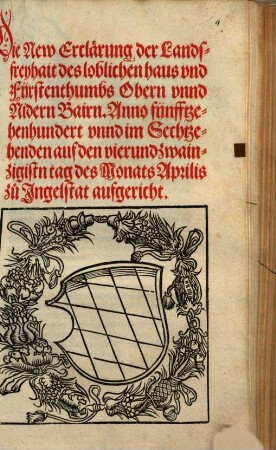 Die New Erclärung der Lands-
freyhait des loblichen haus vnd
Fürstenthumbs Obern vnnd
Nidern Bairn. Anno fünfftze-
henhundert vnnd im Sechtze-
henden auf den vierundzwain-
zigistn tag des Monats Aprilis
zů Jngelstat aufgericht.